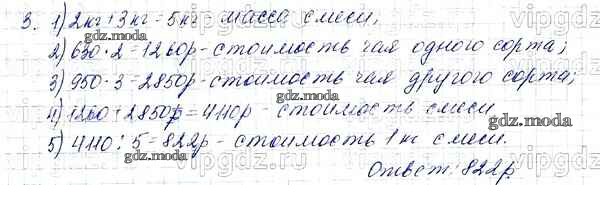 3. 1) 2кг+3кг=5кг масса смеси;
2) 630·2=1260р-стоимость чая одного сорта;
3) 950·3=2850р-стоимость чая другого сорта;
4) 1260+2850р=4110р - стоимость смеси
5) 4110:5=822р-стоимость 1 кг смеси.
Ответ: 822р.
vipgdz.ru
gdz.moda